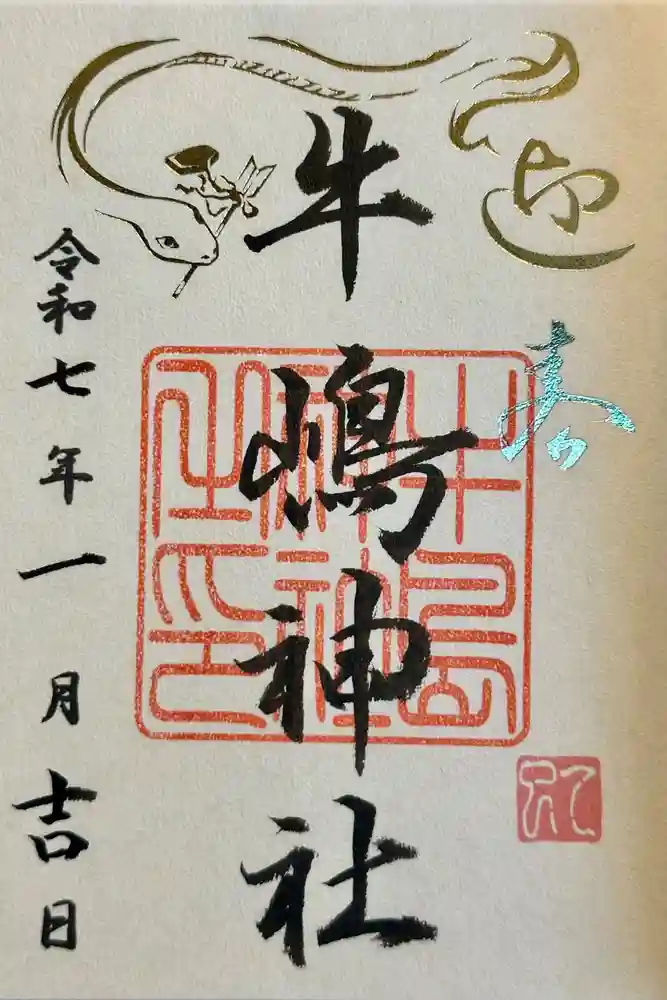 迎春
牛嶋神社
牛嶋神社之印
令和七年一月吉日